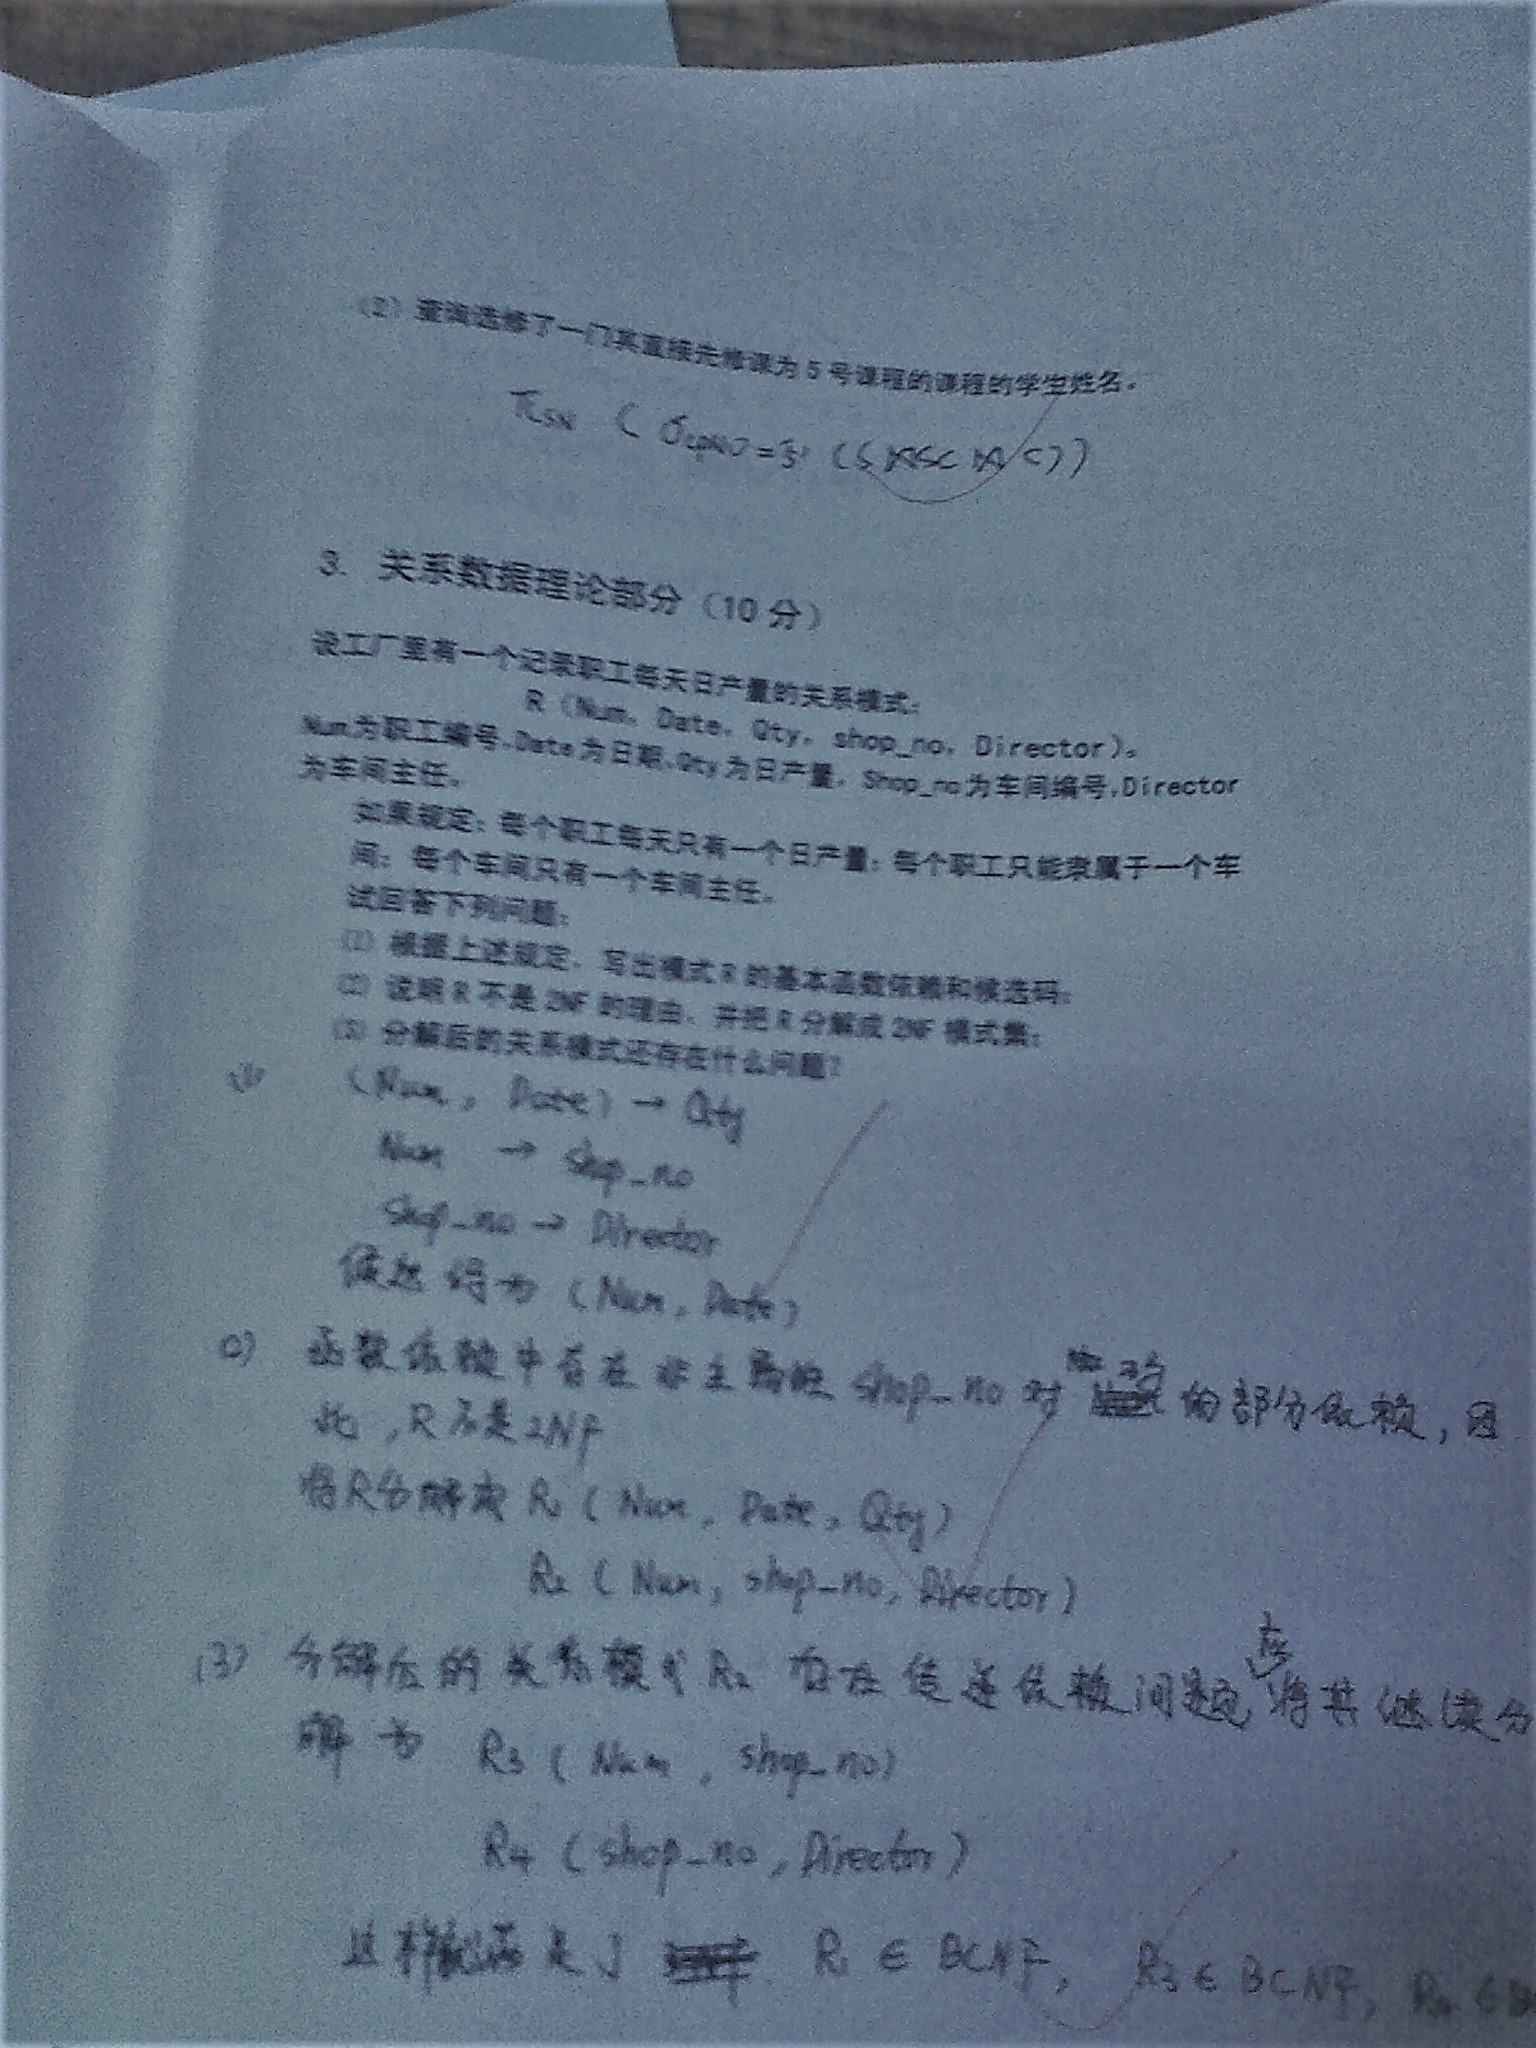 (2) 查询选修了一门其直接先修课为5号课程的课程的学生姓名。
π_SN ( σ_cpno='5' (S⋈SC⋈C))
3. 关系数据理论部分（10分）
设工厂里有一个记录职工每天日产量的关系模式：
R（Num，Date，Qty，shop_no，Director）。
Num为职工编号，Date为日期，Qty为日产量，Shop_no为车间编号，Director
为车间主任。
如果规定：每个职工每天只有一个日产量；每个职工只能隶属于一个车
间；每个车间只有一个车间主任。
试回答下列问题：
(1) 根据上述规定，写出模式R的基本函数依赖和候选码；
(2) 说明R不是2NF的理由，并把R分解成2NF模式集；
(3) 分解后的关系模式还存在什么问题？
(1) (Num, Date) → Qty
Num → shop_no
shop_no → Director
候选码为 (Num, Date)
函数依赖中存在非主属性 shop_no 对 码 的部分依赖，因
此，R不是2NF
将R分解成 R1 (Num, Date, Qty)
R2 (Num, shop_no, Director)
(3) 分解后的关系模式 R2 存在传递依赖问题，应将其继续分
解为 R3 (Num, shop_no)
R4 (shop_no, Director)
这样 R1 ∈ BCNF, R3 ∈ BCNF, R4 ∈